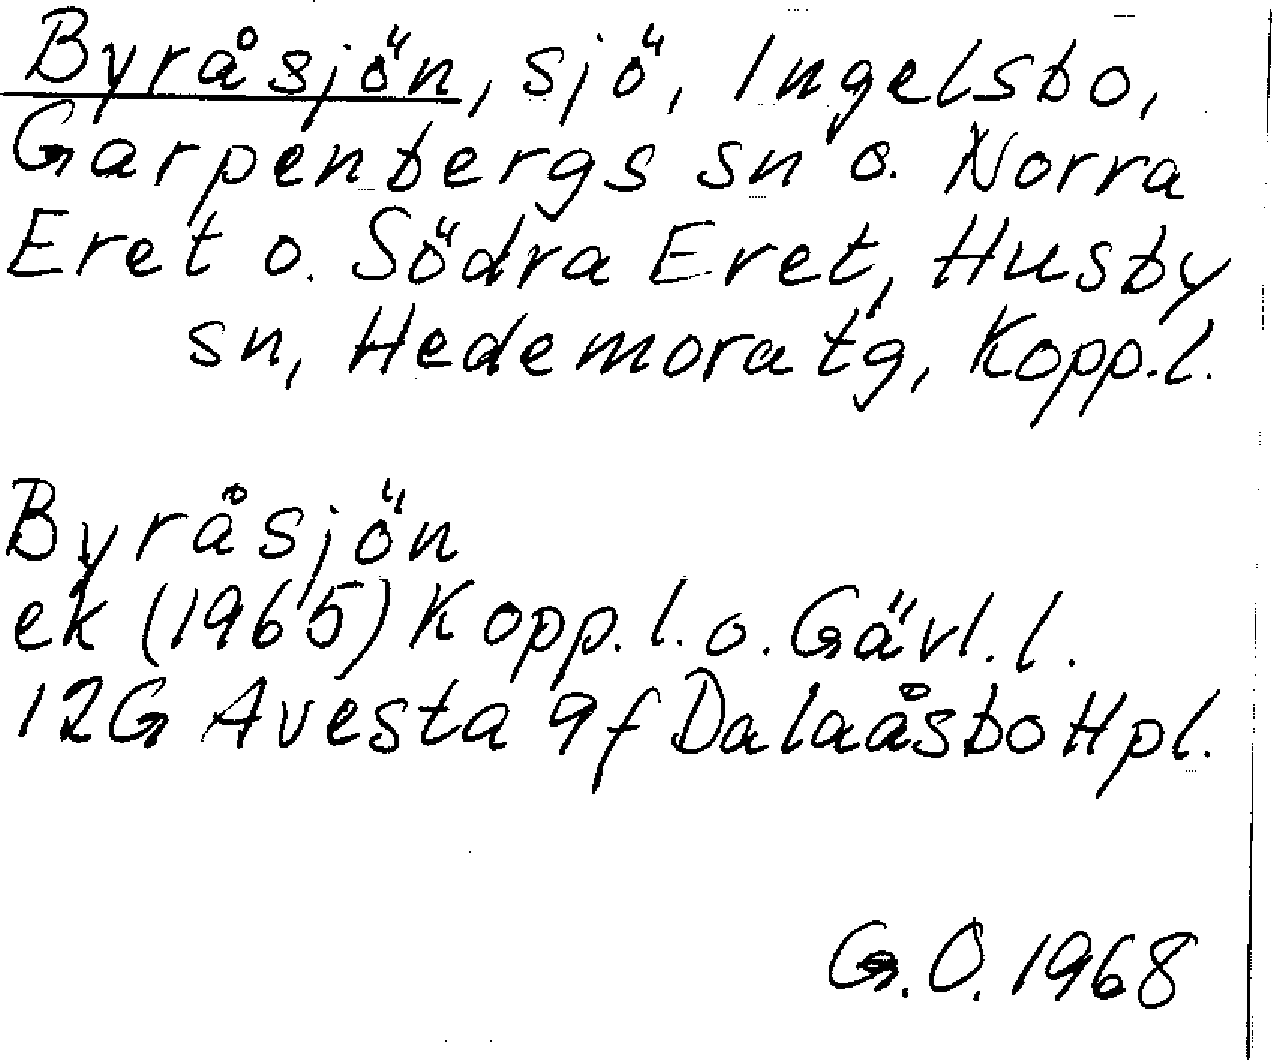 Byråsjön, sjö, Ingelsbo,
Garpenbergs sn o. Norra
Eret o. Södra Eret, Husby
sn, Hedemora tg, Kopp.l.
Byråsjön
ek (1965) Kopp.l.o. Gävl.l.
12G Avesta 9f Dalaåsbo Hpl.
G.O. 1968